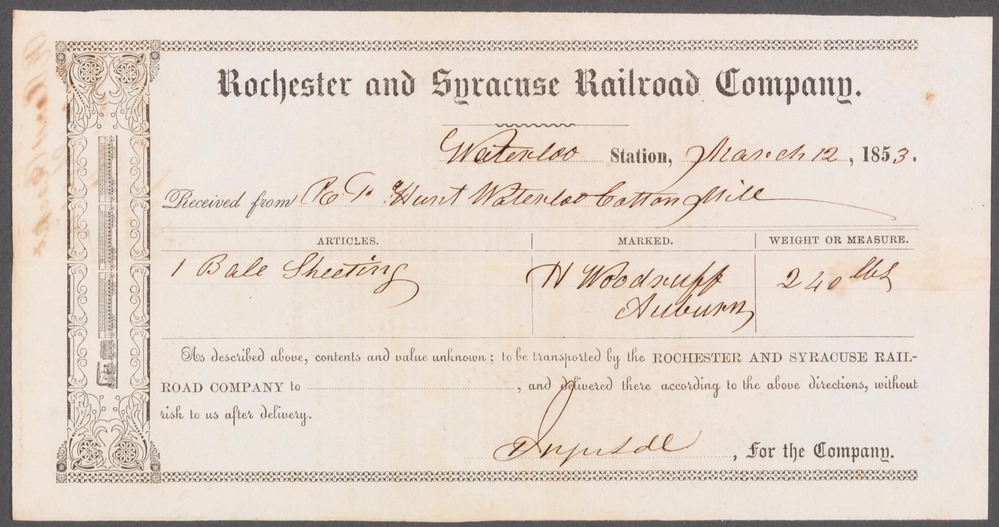 Rochester and Syracuse Railroad Company.
Waterloo Station, March 12, 1853.
Received from R P Hunt Waterloo Cotton Mill
ARTICLES. MARKED. WEIGHT OR MEASURE.
1 Bale Sheeting H Woodruff 240 lbs
Auburn
As described above, contents and value unknown; to be transported by the ROCHESTER AND SYRACUSE RAIL-
ROAD COMPANY to , and delivered there according to the above directions, without
risk to us after delivery.
, For the Company.